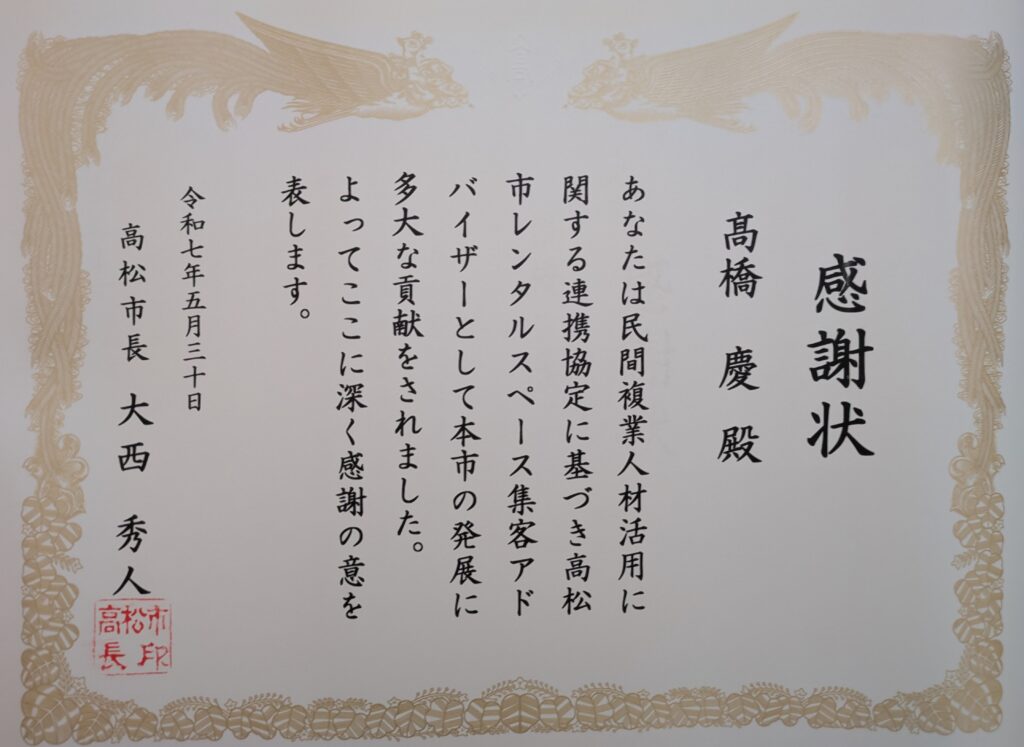 感謝状
髙橋 慶 殿
あなたは民間複業人材活用に
関する連携協定に基づき高松
市レンタルスペース集客アド
バイザーとして本市の発展に
多大な貢献をされました。
よってここに深く感謝の意を
表します。
令和七年五月三十日
高松市長 大西 秀人
高松市
長印